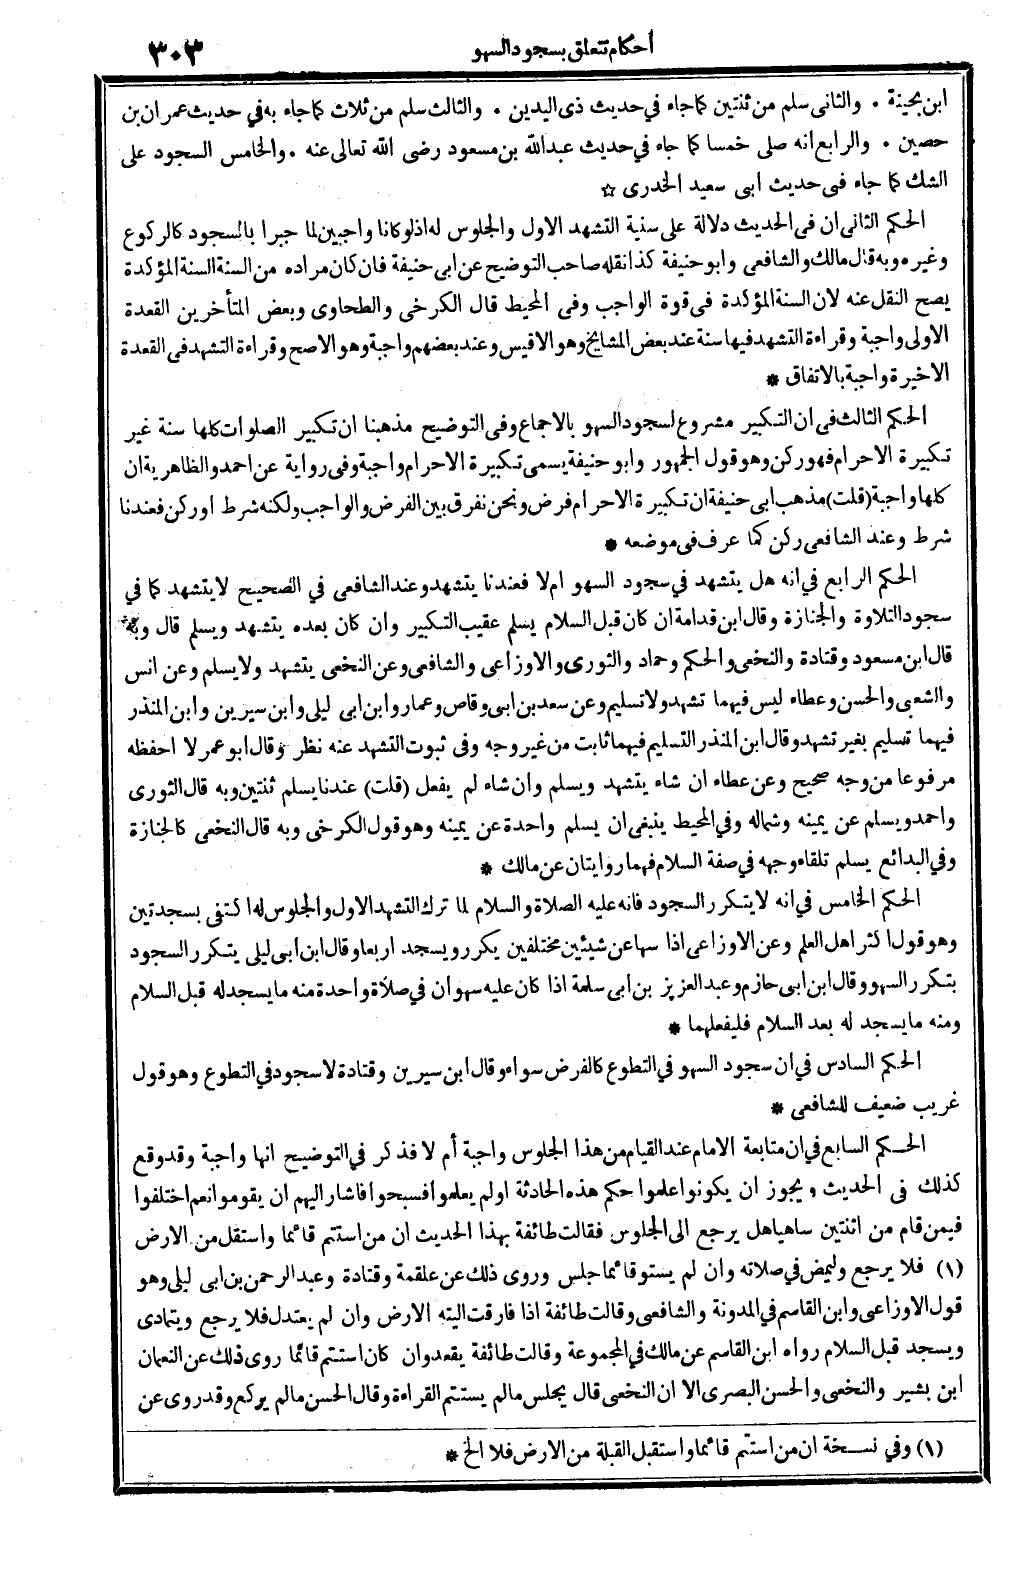 أحكام تتعلق بسجود السهو
٣٠٣
ابن بحينة . والثانى سلم من ثنتين كما جاء في حديث ذى اليدين . والثالث سلم من ثلاث كما جاء به في حديث عمران بن
حصين . والرابع انه صلى خمسا كما جاء في حديث عبدالله بن مسعود رضى الله تعالى عنه . والخامس السجود على
الشك كما جاء فى حديث ابى سعيد الخدرى ☆
الحكم الثانى ان فى الحديث دلالة على سنية التشهد الاول والجلوس له اذ لو كانا واجبين لما جبرا بالسجود كالركوع
وغيره وبه قال مالك والشافعى وابو حنيفة كذا نقله صاحب التوضيح عن ابى حنيفة فان كان مراده من السنة السنة المؤكدة
يصح النقل عنه لان السنة المؤكدة فى قوة الواجب وفى المحيط قال الكرخى والطحاوى وبعض المتأخرين القعدة
الاولى واجبة وقراءة التشهد فيها سنة عند بعض المشايخ وهو الاقيس وعند بعضهم واجبة وهو الاصح وقراءة التشهد فى القعدة
الاخيرة واجبة بالاتفاق *
الحكم الثالث فى ان التكبير مشروع لسجود السهو بالاجماع وفى التوضيح مذهبنا ان تكبير الصلوات كلها سنة غير
تكبيرة الاحرام فهو ركن وهو قول الجمهور وابو حنيفة يسمى تكبيرة الاحرام واجبة وفى رواية عن احمد والظاهرية ان
كلها واجبة (قلت) مذهب ابى حنيفة ان تكبيرة الاحرام فرض ونحن نفرق بين الفرض والواجب ولكنه شرط او ركن فعندنا
شرط وعند الشافعى ركن كما عرف فى موضعه *
الحكم الرابع في انه هل يتشهد في سجود السهو ام لا فعندنا يتشهد وعند الشافعى في الصحيح لا يتشهد كما في
سجود التلاوة والجنازة وقال ابن قدامة ان كان قبل السلام يسلم عقيب التكبير وان كان بعده يتشهد ويسلم قال وبه
قال ابن مسعود وقتادة والنخعى والحكم وحماد والثورى والاوزاعى والشافعى وعن النخعى يتشهد ولا يسلم وعن انس
والشعبى والحسن وعطاء ليس فيهما تشهد ولا تسليم وعن سعد بن ابى وقاص وعمار وابن ابى ليلى وابن سيرين وابن المنذر
فيهما تسليم بغير تشهد وقال ابن المنذر التسليم فيهما ثابت من غير وجه وفى ثبوت التشهد عنه نظر وقال ابو عمر لا احفظه
مرفوعا من وجه صحيح وعن عطاء ان شاء يتشهد ويسلم وان شاء لم يفعل (قلت) عندنا يسلم ثنتين وبه قال الثورى
واحمد ويسلم عن يمينه وشماله وفي المحيط ينبغى ان يسلم واحدة عن يمينه وهو قول الكرخى وبه قال النخعى كالجنازة
وفي البدائع يسلم تلقاء وجهه في صفة السلام فهما روايتان عن مالك *
الحكم الخامس في انه لا يتكرر السجود فانه عليه الصلاة والسلام لما ترك التشهد الاول والجلوس له اكتفى بسجدتين
وهو قول اكثر اهل العلم وعن الاوزاعى اذا سها عن شيئين مختلفين يكرر ويسجد اربعا وقال ابن ابى ليلى يتكرر السجود
بتكرر السهو وقال ابن ابى حازم وعبد العزيز بن ابى سلمة اذا كان عليه سهوان في صلاة واحدة منه ما يسجد له قبل السلام
ومنه ما يسجد له بعد السلام فليفعلهما *
الحكم السادس في ان سجود السهو في التطوع كالفرض سواء وقال ابن سيرين وقتادة لا سجود في التطوع وهو قول
غريب ضعيف للشافعى *
الحكم السابع في ان متابعة الامام عند القيام من هذا الجلوس واجبة أم لا فذكر في التوضيح انها واجبة وقد وقع
كذلك فى الحديث ويجوز ان يكونوا علموا حكم هذه الحادثة او لم يعلموا فسبحوا فاشار اليهم ان يقوموا نعم اختلفوا
فيمن قام من اثنتين ساهيا هل يرجع الى الجلوس فقالت طائفة بهذا الحديث ان من استتم قائما واستقل من الارض
(١) فلا يرجع وليمض في صلاته وان لم يستو قائما جلس وروى ذلك عن علقمة وقتادة وعبد الرحمن بن ابى ليلى وهو
قول الاوزاعى وابن القاسم في المدونة والشافعى وقالت طائفة اذا فارقت اليته الارض وان لم يعتدل فلا يرجع ويتمادى
ويسجد قبل السلام رواه ابن القاسم عن مالك في المجموعة وقالت طائفة يقعد وان كان استتم قائما روى ذلك عن النعمان
ابن بشير والنخعى والحسن البصرى الا ان النخعى قال يجلس مالم يستتم القراءة وقال الحسن مالم يركع وقد روى عن
(١) وفي نسخة ان من استتم قائما واستقبل القبلة من الارض فلا الخ *